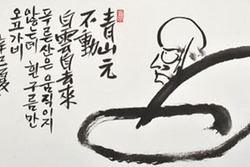 青山元
不動
白雲自去來
푸른산은 움직이지
않는데 흰구름만
오고가네